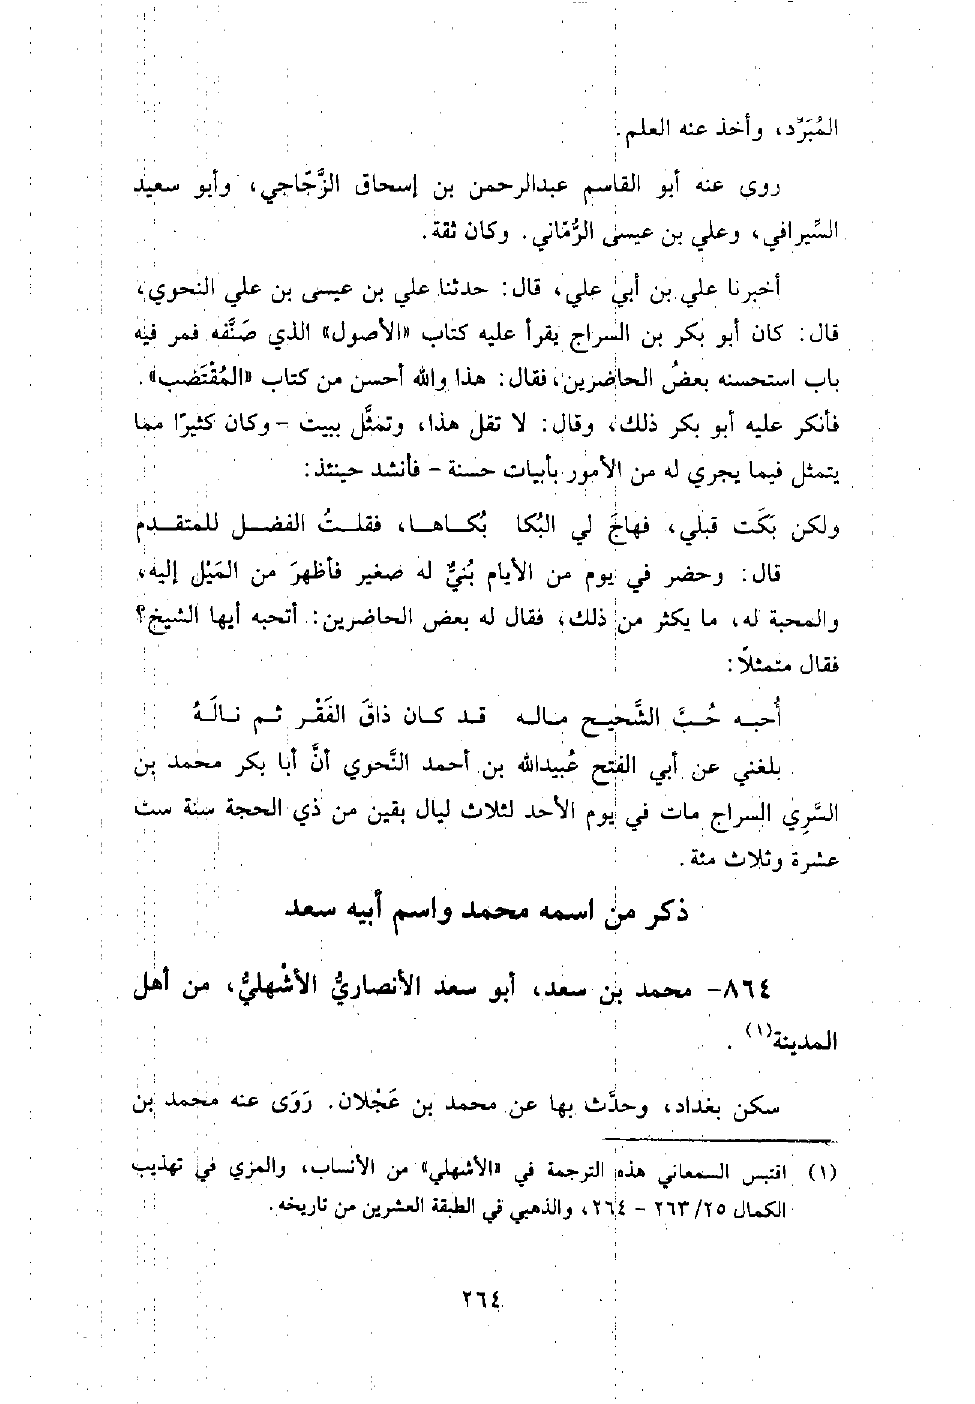 المُبَرِّد، وأخذ عنه العلم.
روى عنه أبو القاسم عبدالرحمن بن إسحاق الزَّجّاجي، وأبو سعيد
السِّيرافي، وعلي بن عيسى الرُّمّاني. وكان ثقة.
أخبرنا علي بن أبي علي، قال: حدثنا علي بن عيسى بن علي النحوي،
قال: كان أبو بكر بن السراج يقرأ عليه كتاب «الأصول» الذي صَنَّفه فمر فيه
باب استحسنه بعضُ الحاضرين، فقال: هذا والله أحسن من كتاب «المُقْتَضب».
فأنكر عليه أبو بكر ذلك، وقال: لا تقل هذا، وتمثَّل ببيت -وكان كثيرًا مما
يتمثل فيما يجري له من الأمور بأبيات حسنة - فأنشد حينئذ:
ولكن بَكَت قبلي، فهاجَ لي البُكا بُكاها، فقلتُ الفضل للمتقدم
قال: وحضر في يوم من الأيام بُنيٌّ له صغير فأظهرَ من المَيْل إليه،
والمحبة له، ما يكثر من ذلك، فقال له بعض الحاضرين: أتحبه أيها الشيخ؟
فقال متمثلاً:
أُحبه حُبَّ الشَّحيح ماله قد كان ذاقَ الفَقْر ثم نالَهُ
بلغني عن أبي الفتح عُبيدالله بن أحمد النَّحوي أنَّ أبا بكر محمد بن
السَّرِي السراج مات في يوم الأحد لثلاث ليال بقين من ذي الحجة سنة ست
عشرة وثلاث مئة.
ذكر من اسمه محمد واسم أبيه سعد
٨٦٤- محمد بن سعد، أبو سعد الأنصاريُّ الأشْهليُّ، من أهل
المدينة(١).
سكن بغداد، وحدَّث بها عن محمد بن عَجْلان. رَوَى عنه محمد بن
(١) اقتبس السمعاني هذه الترجمة في «الأشهلي» من الأنساب، والمزي في تهذيب
الكمال ٢٥/ ٢٦٣ - ٢٦٤، والذهبي في الطبقة العشرين من تاريخه.
٢٦٤